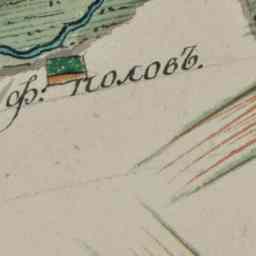 ф: половъ.